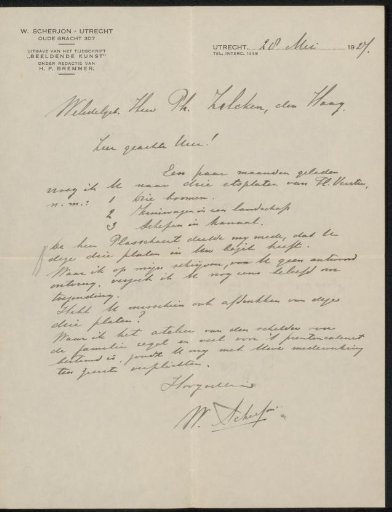 W. SCHERJON - UTRECHT
OUDE GRACHT 307
UITGAVE VAN HET TIJDSCHRIFT
„BEELDENDE KUNST"
ONDER REDACTIE VAN
H. P. BREMMER.
UTRECHT, 28 Mei 1927.
TEL. INTERC.
Weledelgeb. Heer Ph. Zilcken, den Haag.
Zeer geachte Heer!
Een paar maanden geleden
vroeg ik U naar drie etsplaten van Fl. Verster,
n.m.: 1 Drie boomen.
2 Kruiwagen in een landschap
3 Schepen in kanaal.
De heer Plasschaert deelde mij mede, dat U
deze drie platen in Uw bezit heeft.
Waar ik op mijn schrijven van U geen antwoord
ontving, verzoek ik U nog eens beleefd om
toezending.
Hebt U misschien ook afdrukken van deze
drie platen?
Waar ik het atelier van den schilder voor
de familie regel en veel voor 't prentenkabinet
bestemd is, zoudt U mij met Uwe medewerking
ten zeerste verplichten.
Hoogachtend
W. Scherjon